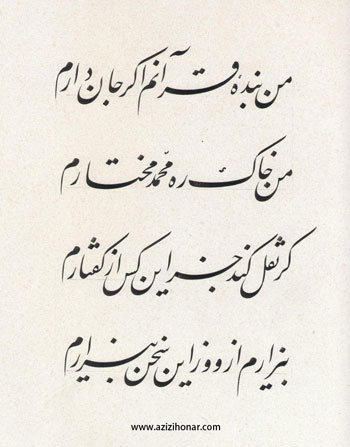 من بندهٔ قرآنم اگر جان دارم
من خاک ره محمد مختارم
گر نقل کند جز این کس از گفتارم
بیزارم از او وز این سخن بیزارم
www.azizihonar.com